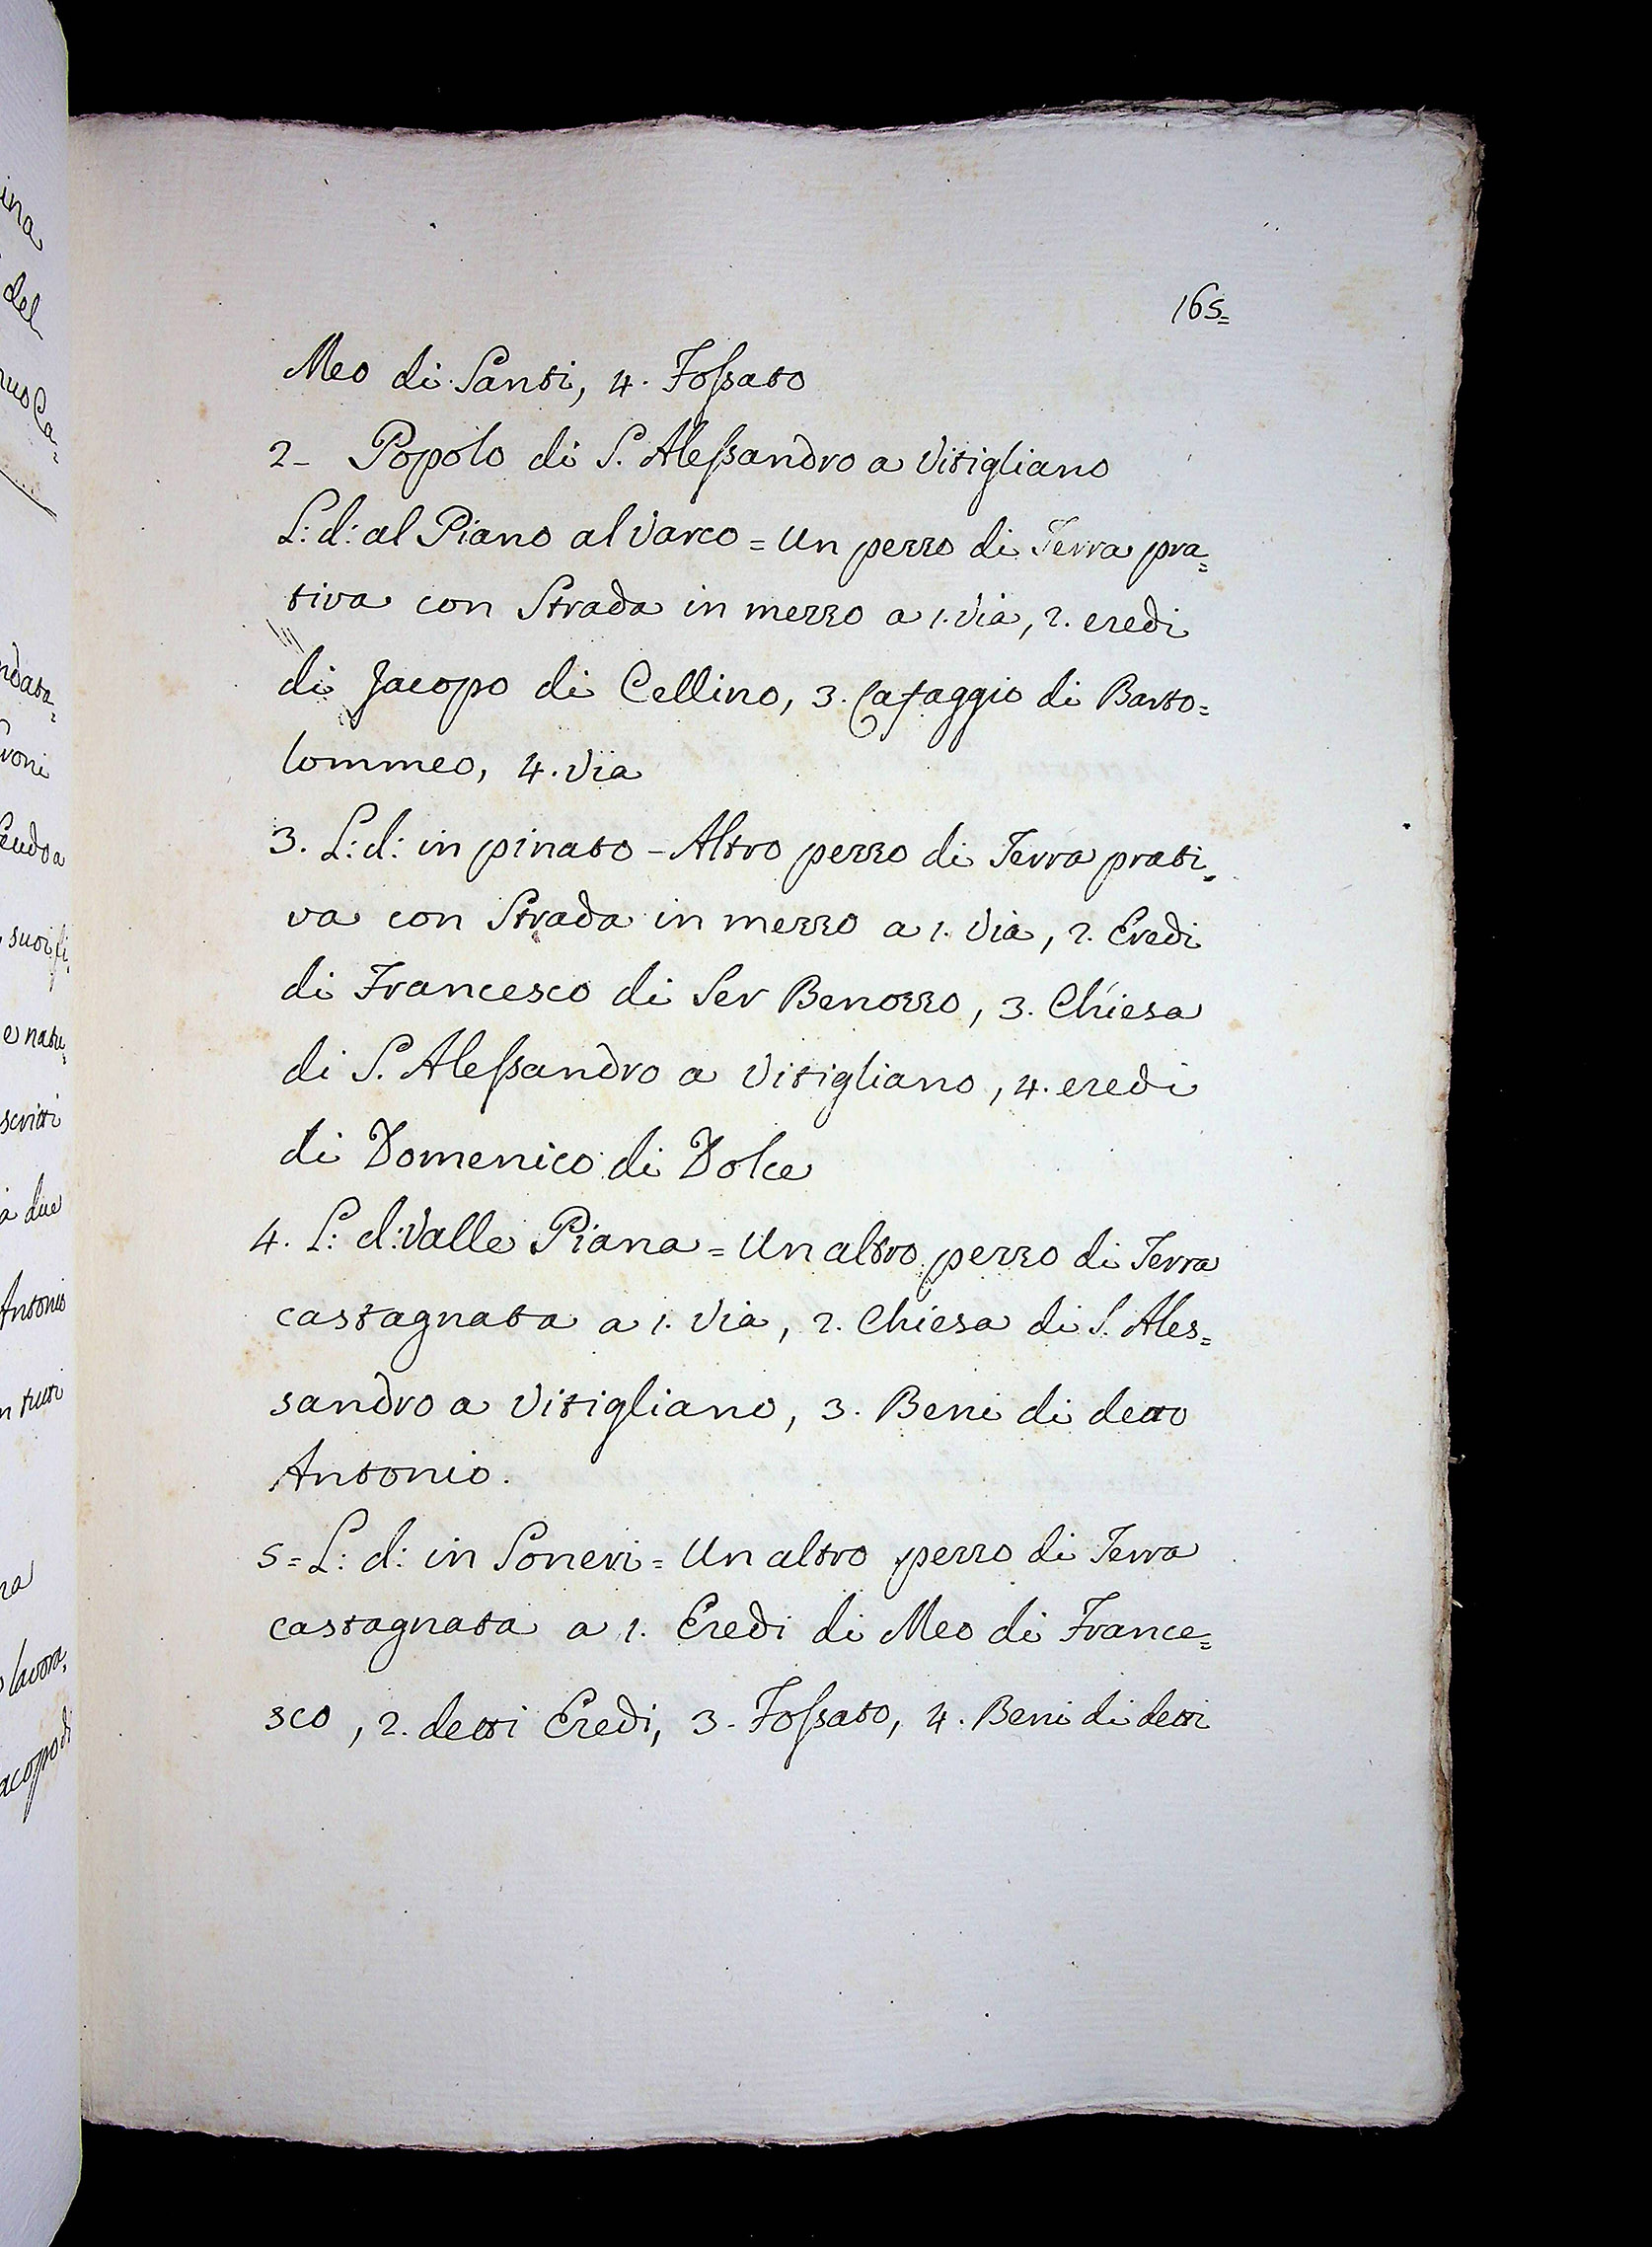 ina
del
ruo Ca=
ndata=
roni
feudo a
suoi fi=
e natu=
scritti
a due
Antonio
n tutti
ra
lavora=
acopo di
165=
Meo di Santi, 4. Fossato
2- Popolo di S. Alessandro a Vitigliano
L: d: al Piano al Varco = Un pezzo di Terra pra=
tiva con Strada in mezzo a 1. Via, 2. eredi
di Jacopo di Cellino, 3. Cafaggio di Barto=
lommeo, 4. Via
3. L: d: in pinato - Altro pezzo di Terra prati=
va con Strada in mezzo a 1. Via, 2. Eredi
di Francesco di Ser Benozzo, 3. Chiesa
di S. Alessandro a Vitigliano, 4. eredi
di Domenico di Dolce
4. L: d: Valle Piana = Un altro pezzo di Terra
castagnata a 1. Via, 2. Chiesa di S. Ales=
sandro a Vitigliano, 3. Beni di detto
Antonio.
5= L: d: in Soneri = Un altro pezzo di Terra
castagnata a 1. Eredi di Meo di France=
sco, 2. detti Eredi, 3. Fossato, 4. Beni di detti